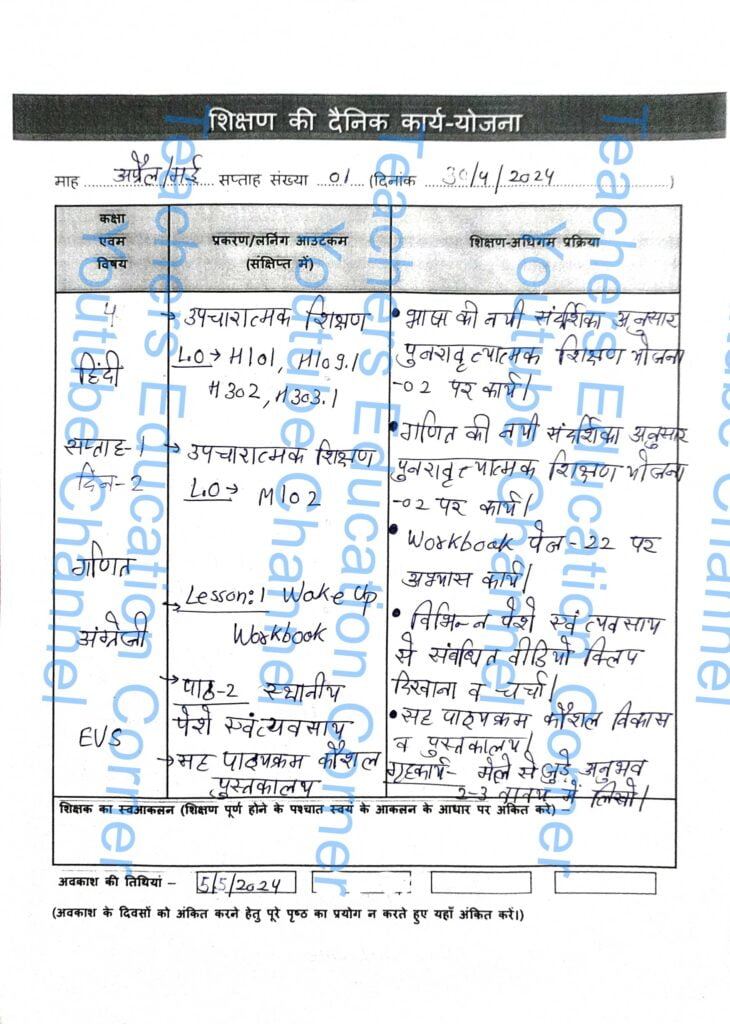 शिक्षण की दैनिक कार्य-योजना
माह अप्रैल/मई सप्ताह संख्या 01 (दिनांक 30/4/2024)
कक्षा
एवम
विषय
प्रकरण/लर्निंग आउटकम
(संक्षिप्त में)
शिक्षण-अधिगम प्रक्रिया
4
हिंदी
सप्ताह-1
दिन-2
गणित
अंग्रेजी
EVS
→ उपचारात्मक शिक्षण
L.O → H101, H109.1
H302, H303.1
→ उपचारात्मक शिक्षण
L.O → M102
→ Lesson:1 Wake Up
Workbook
→ पाठ-2 स्थानीय
पेशे एवं व्यवसाय
→ सह पाठ्यक्रम कौशल
पुस्तकालय
• भाषा की नयी संदर्शिका अनुसार
पुनरावृत्यात्मक शिक्षण योजना
-02 पर कार्य।
• गणित की नयी संदर्शिका अनुसार
पुनरावृत्यात्मक शिक्षण योजना
-02 पर कार्य।
• Workbook पेज-22 पर
अभ्यास कार्य।
• विभिन्न पेशे एवं व्यवसाय
से संबंधित वीडियो क्लिप
दिखाना व चर्चा।
• सह पाठ्यक्रम कौशल विकास
व पुस्तकालय।
गृहकार्य- मेले से जुड़े अनुभव
2-3 वाक्य में लिखो।
शिक्षक का स्वआकलन (शिक्षण पूर्ण होने के पश्चात स्वयं के आकलन के आधार पर अंकित करे) –
अवकाश की तिथियां – 5/5/2024
(अवकाश के दिवसों को अंकित करने हेतु पूरे पृष्ठ का प्रयोग न करते हुए यहाँ अंकित करें।)
Teachers Education Corner
Youtube Channel
Teachers Education Corner
Youtube Channel
Teachers Education Corner
Youtube Channel
ube Channel